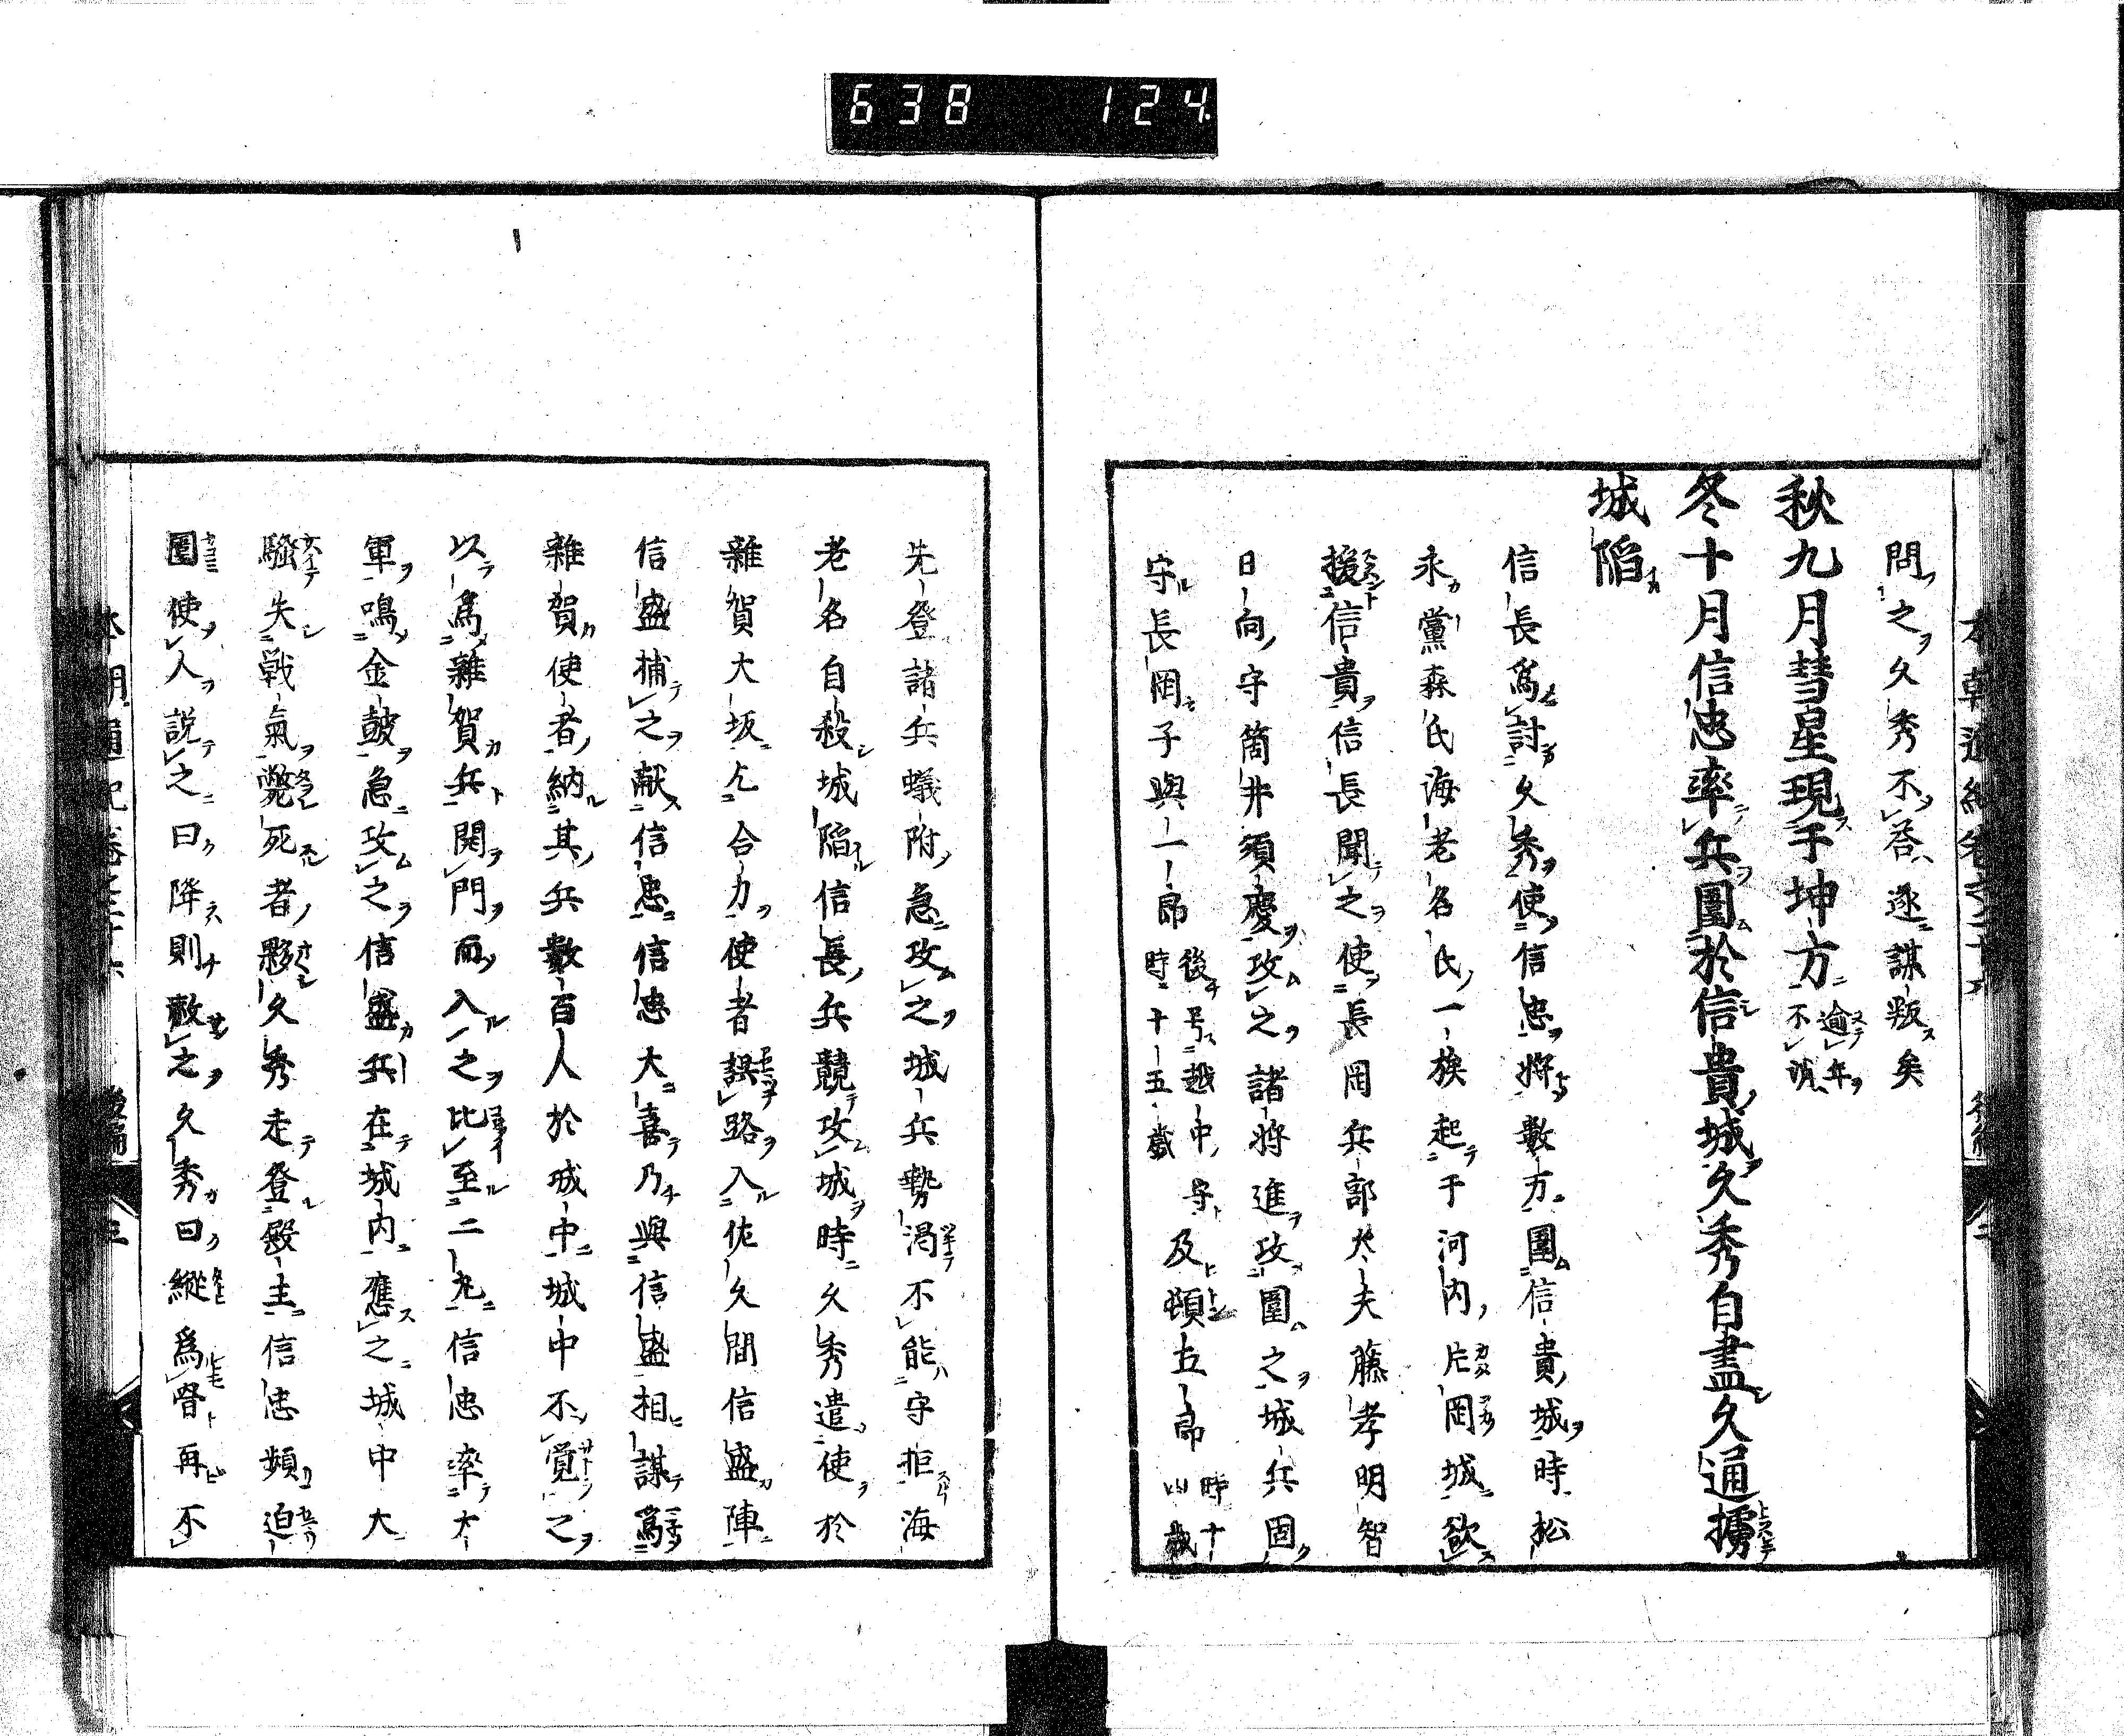 638 124
問之久秀不答遂謀叛矣
秋九月彗星現于坤方逾年不消
冬十月信忠率兵圍於信貴城久秀自盡久通擄
城陷
信長爲討久秀使信忠將數万圍信貴城時松
永黨森氏海老名氏一族起于河内片岡城欲
援信貴信長聞之使長岡兵部大夫藤孝明智
日向守筒井順慶攻之諸將進攻圍之城兵固
守長岡子與一郎後号越中守時十五歳及頓五郎時十四歳
先登諸兵蟻附急攻之城兵勢渇不能守拒海
老名自殺城陷信長兵競攻城時久秀遣使於
雜賀大坂乞合力使者誤路入佐久間信盛陣
信盛捕之献信忠信忠大喜乃與信盛相謀爲
雜賀使者納其兵數百人於城中城中不覚之
以爲雜賀兵開門而入之比至二丸信忠率大
軍鳴金皷急攻之信盛兵在城内應之城中大
騒失戰氣斃死者夥久秀走登殿主信忠頻迫
圍使人説之曰降則赦之久秀曰縱爲督再不